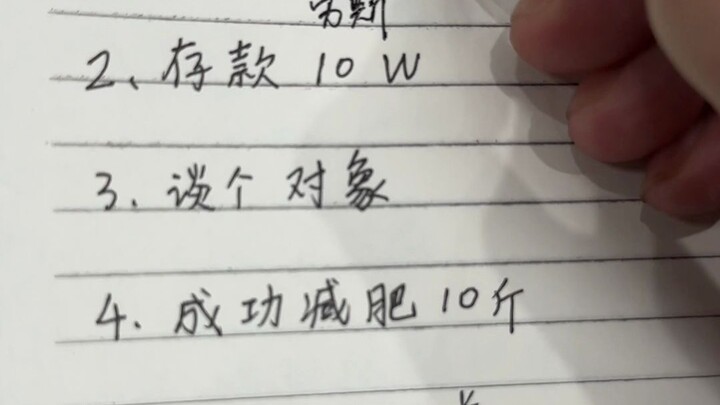 2、存款 10 W
3. 谈个 对象
4. 成功减肥 10斤